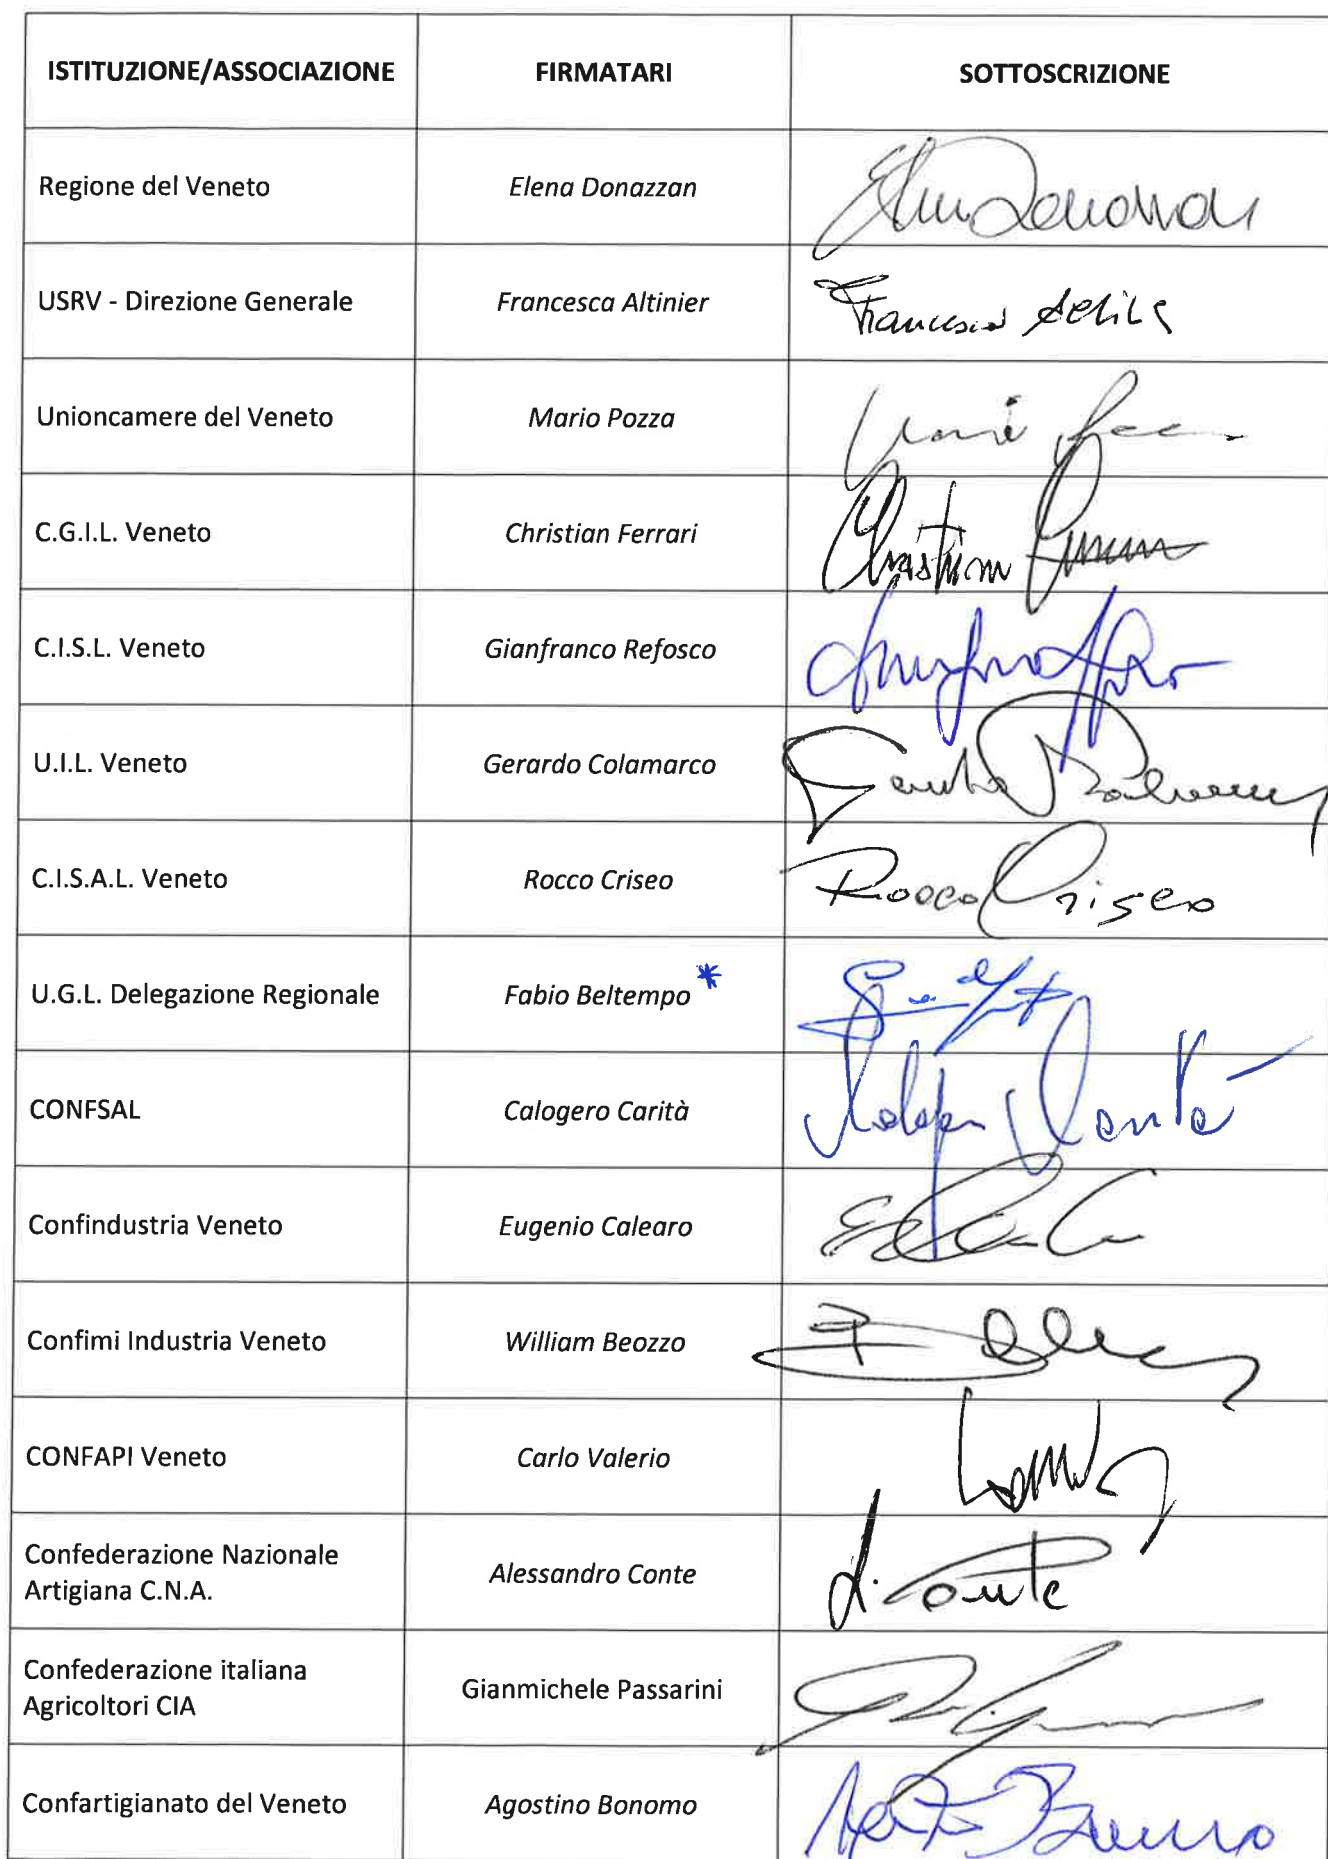 ISTITUZIONE/ASSOCIAZIONE FIRMATARI SOTTOSCRIZIONE
Regione del Veneto Elena Donazzan
USRV - Direzione Generale Francesca Altinier Francesca
Unioncamere del Veneto Mario Pozza
C.G.I.L. Veneto Christian Ferrari Christian
C.I.S.L. Veneto Gianfranco Refosco
U.I.L. Veneto Gerardo Colamarco
C.I.S.A.L. Veneto Rocco Criseo Rocco Criseo
U.G.L. Delegazione Regionale Fabio Beltempo *
CONFSAL Calogero Carità
Confindustria Veneto Eugenio Calearo
Confimi Industria Veneto William Beozzo
CONFAPI Veneto Carlo Valerio
Confederazione Nazionale
Artigiana C.N.A. Alessandro Conte A. Conte
Confederazione italiana
Agricoltori CIA Gianmichele Passarini
Confartigianato del Veneto Agostino Bonomo